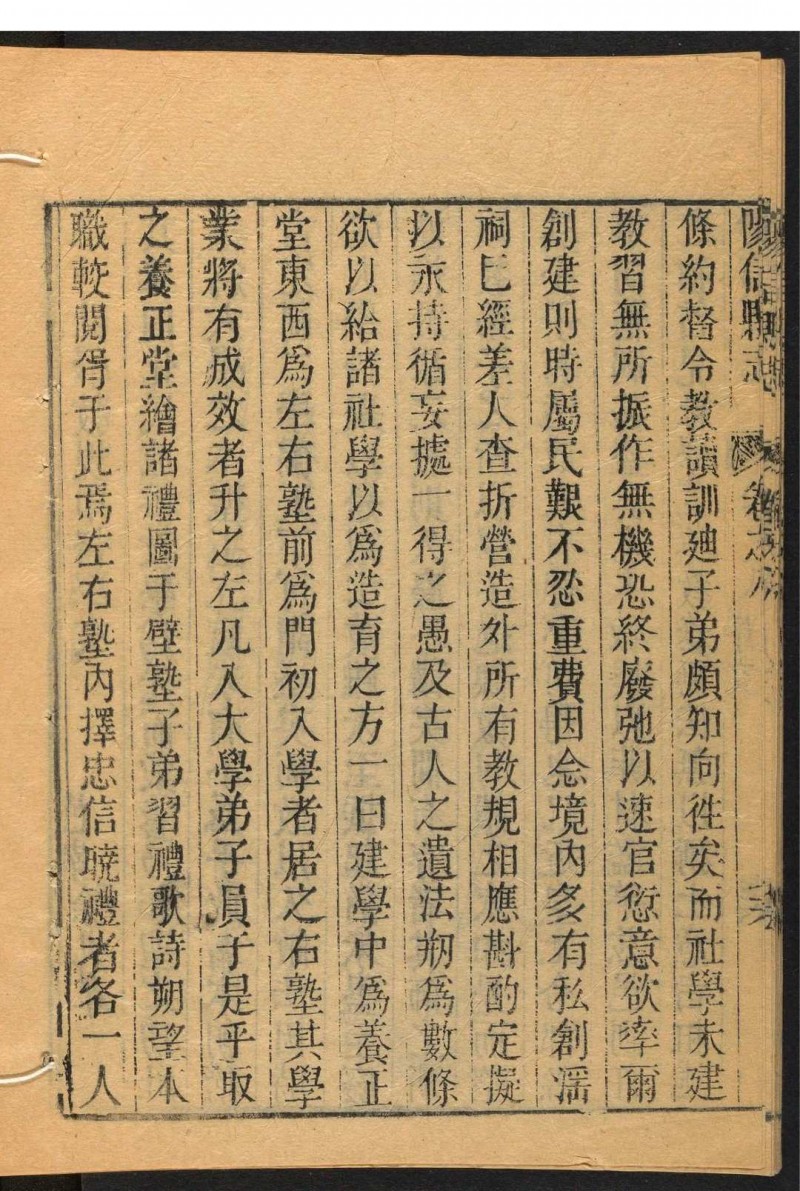 陽信縣志 卷之八
條約督令教讀訓廸子弟頗知向徃矣而社學未建
教習無所振作無機恐終廢弛以速官愆意欲率爾
創建則時屬民艱不忍重費因念境內多有私創淫
祠已經差人查折營造外所有教規相應斟酌定擬
以永持循妄攄一得之愚及古人之遺法剏爲數條
欲以給諸社學以爲造育之方一曰建學中爲養正
堂東西爲左右塾前爲門初入學者居之右塾其學
業將有成效者升之左凡入大學弟子員于是乎取
之養正堂繪諸禮圖于壁塾子弟習禮歌詩朔望本
職較閱胥于此焉左右塾內擇忠信曉禮者各一人